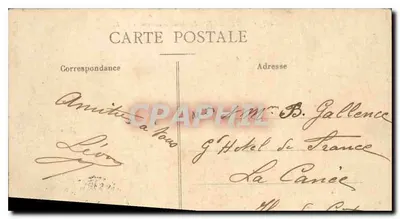 CARTE POSTALE
Correspondance
Adresse
Amitiés à vous
Léon
B. Gallence
Gd Hotel de France
La Canée